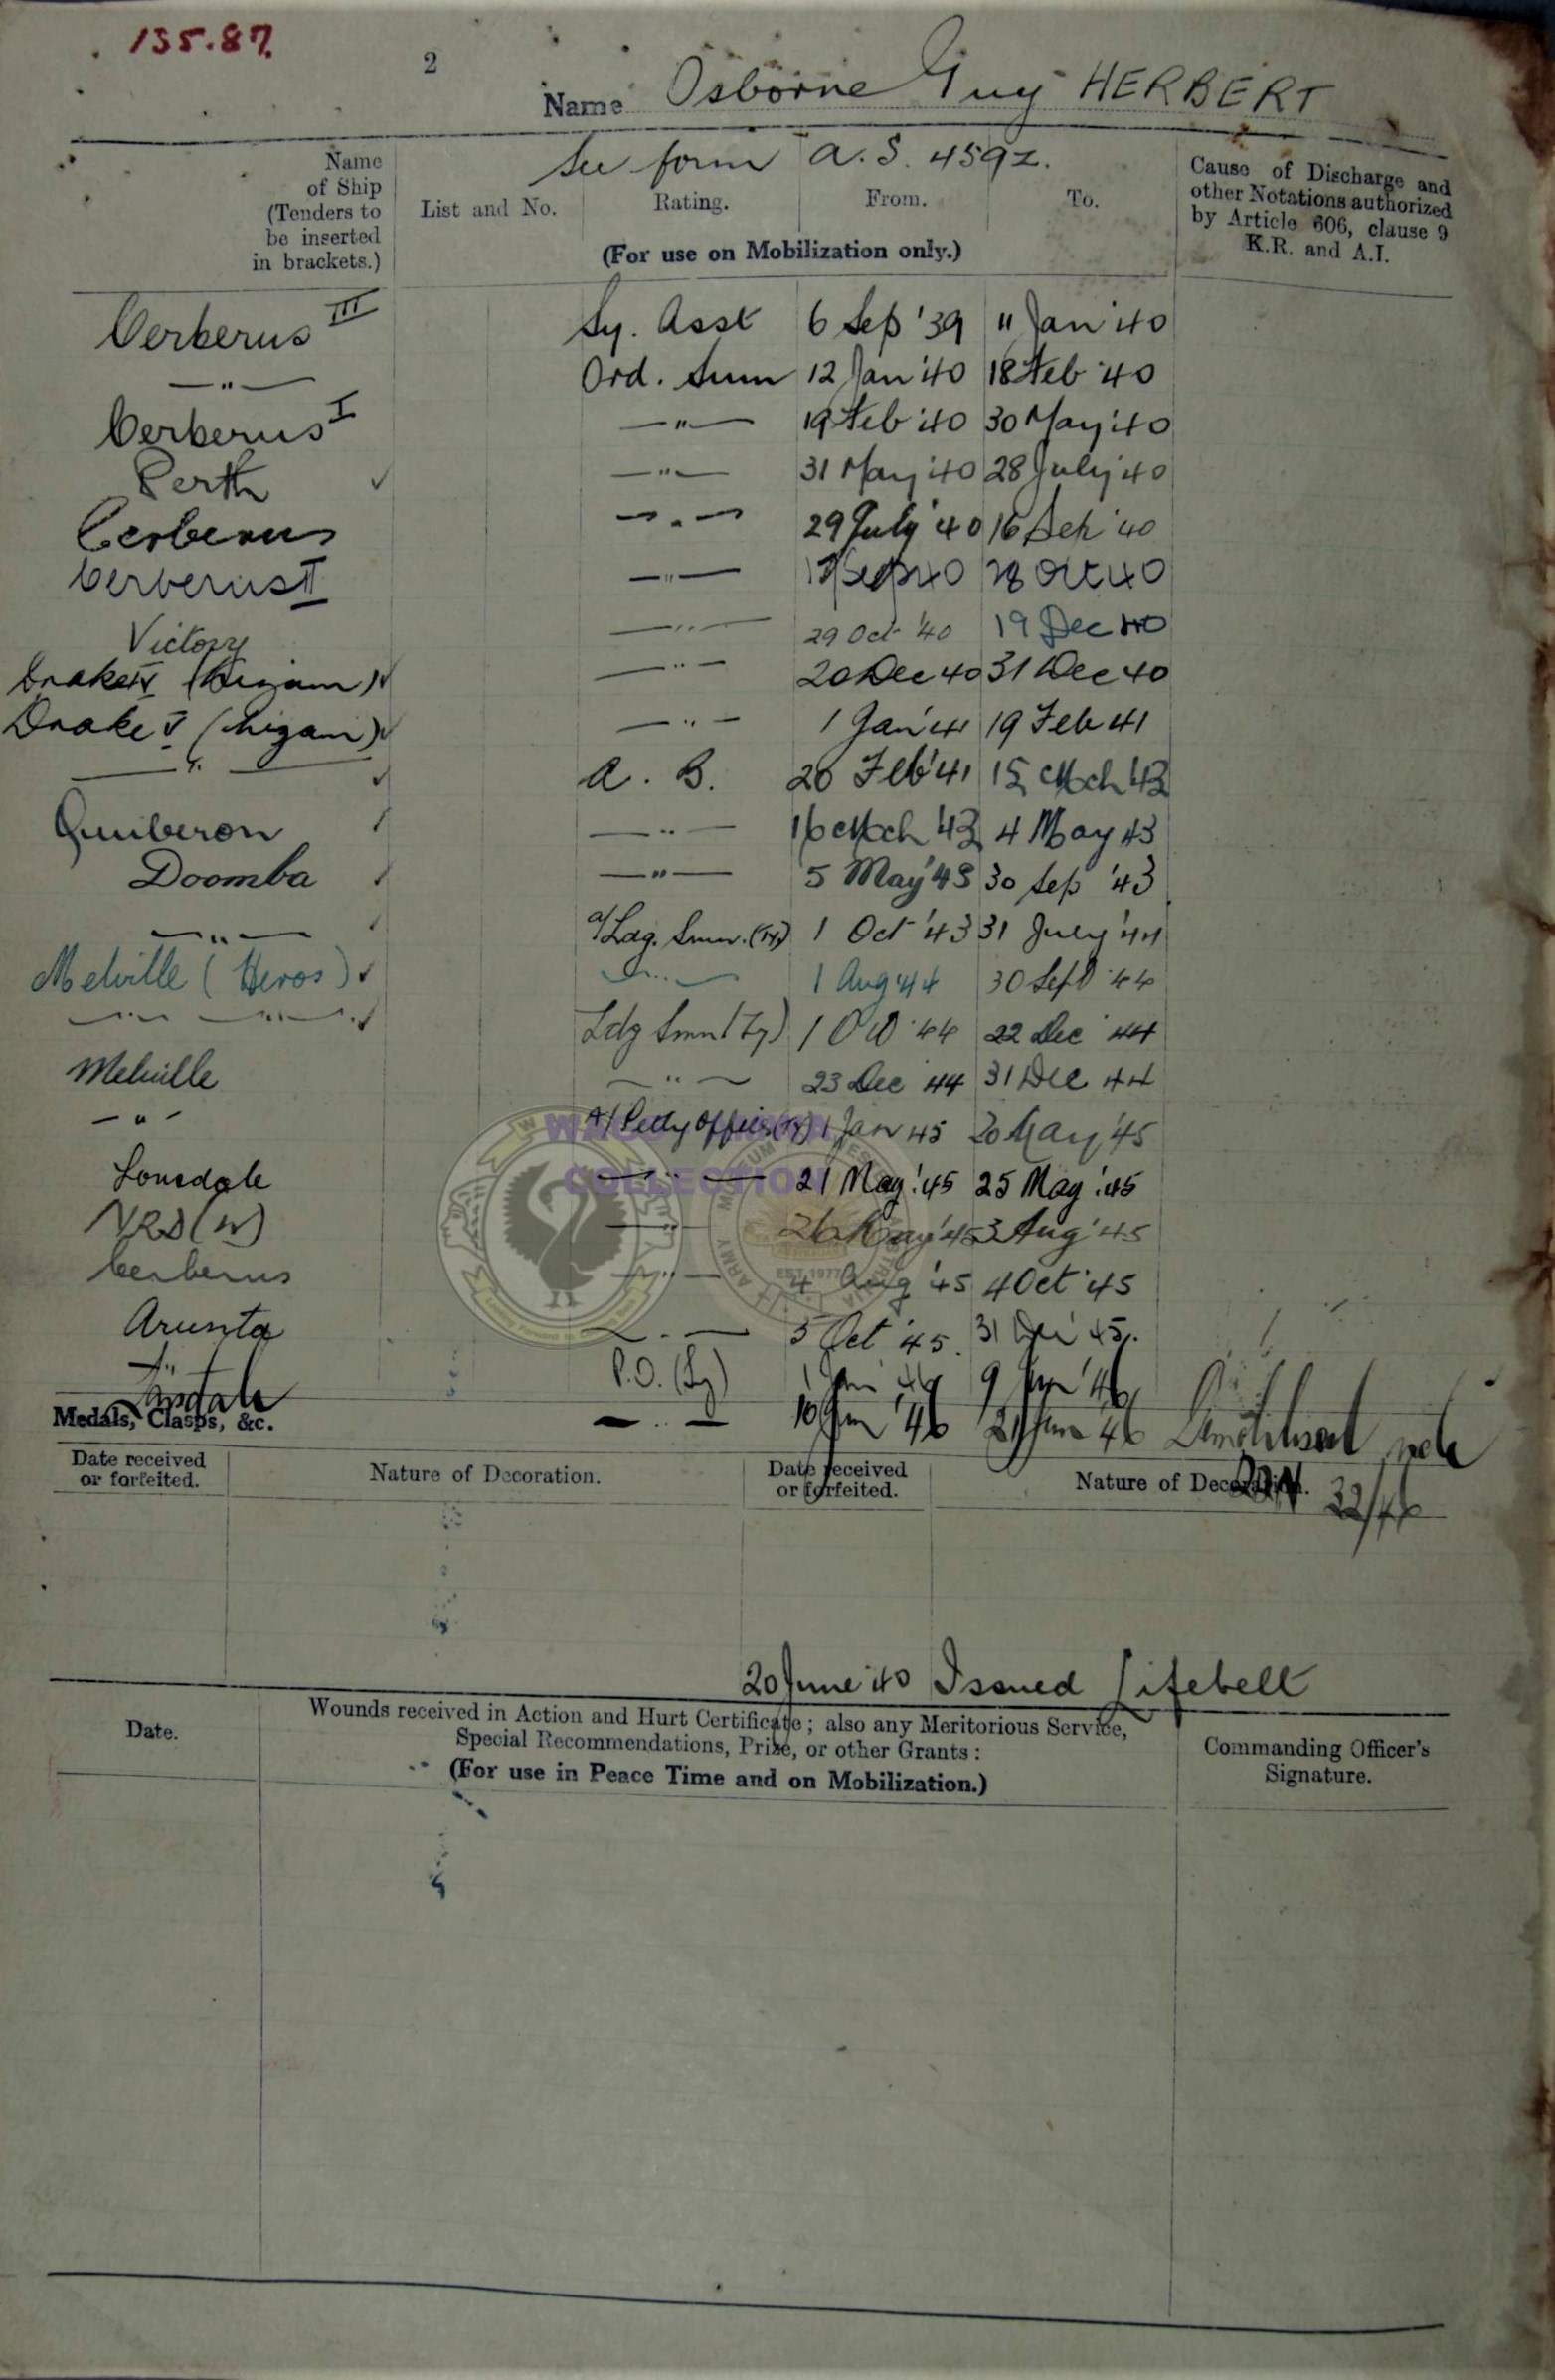 135.87
2
Name Osborne Guy HERBERT
See form A.S. 459z.
Name of Ship (Tenders to be inserted in brackets.)
List and No.
Rating.
From.
To.
Cause of Discharge and other Notations authorized by Article 606, clause 9 K.R. and A.I.
(For use on Mobilization only.)
Cerberus III Sy. Asst 6 Sep '39 11 Jan '40
—"— Ord. Smn 12 Jan '40 18 Feb '40
Cerberus I —"— 19 Feb '40 30 May '40
Perth ✓ —"— 31 May '40 28 July '40
Cerberus —"— 29 July '40 16 Sep '40
Cerberus II —"— 17 Sep 40 28 Oct 40
Victory —"— 29 Oct '40 19 Dec 40
Drake IV (Nizam) ✓ —"— 20 Dec 40 31 Dec 40
Drake V (Nizam) ✓ —"— 1 Jan '41 19 Feb 41
—"— ✓ A. B. 20 Feb '41 15 Mch '43
Quiberon ✓ —"— 16 Mch '43 4 May 43
Doomba ✓ —"— 5 May '43 30 Sep '43
—"— ✓ A/Ldg. Smn. (Ty) 1 Oct '43 31 July '44
Melville (Heros) ✓ —"— 1 Aug '44 30 Sept '44
—"— —"— ✓ Ldg Smn (Ty) 1 Oct '44 22 Dec '44
Melville —"— 23 Dec '44 31 Dec 44
—"— A/Petty Officer (Ty) 1 Jan 45 20 May '45
Lonsdale —"— 21 May '45 25 May '45
NRD (W) —"— 26 May '45 3 Aug '45
Cerberus —"— 4 Aug '45 4 Oct '45
Arunta —"— 5 Oct '45. 31 Dec 45.
—"— P.O. (Ty) 1 Jan 46 9 Jan '46
Lonsdale —"— 10 Jan '46 21 Jan '46 Demobilised
32/46
WAGS COLLECTION
ARMY MUSEUM
EST. 1977
Medals, Clasps, &c.
Date received or forfeited.
Nature of Decoration.
Date received or forfeited.
Nature of Decoration.
20 June '40 Issued Lifebelt
Date.
Wounds received in Action and Hurt Certificate; also any Meritorious Service,
Special Recommendations, Prize, or other Grants:
(For use in Peace Time and on Mobilization.)
Commanding Officer's Signature.